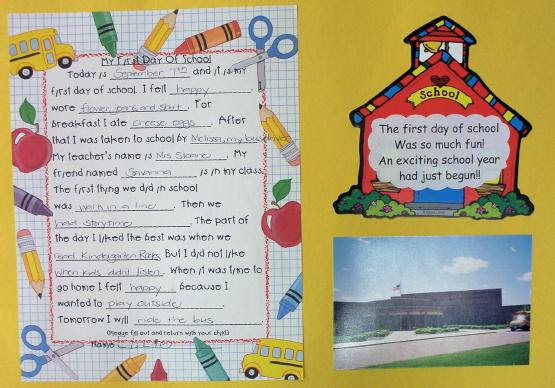 My First Day Of School
Today is September 7th and it is my
first day of school. I felt happy. I
wore flower, jeans and shirt. For
breakfast I ate cheese eggs. After
that I was taken to school by Melissa, my bus driver
My teacher's name is Mrs Sloane. My
friend named Savanna is in my class.
The first thing we did in school
was walk in a line. Then we
had storytime. The part of
the day I liked the best was when we
read Kindergarten Rocks. But I did not like
when kids didn't listen. When it was time to
go home I felt happy. because I
wanted to play outside.
Tomorrow I will ride the bus.
(Please fill out and return with your child)
Name
School
The first day of school
Was so much fun!
An exciting school year
had just begun!!